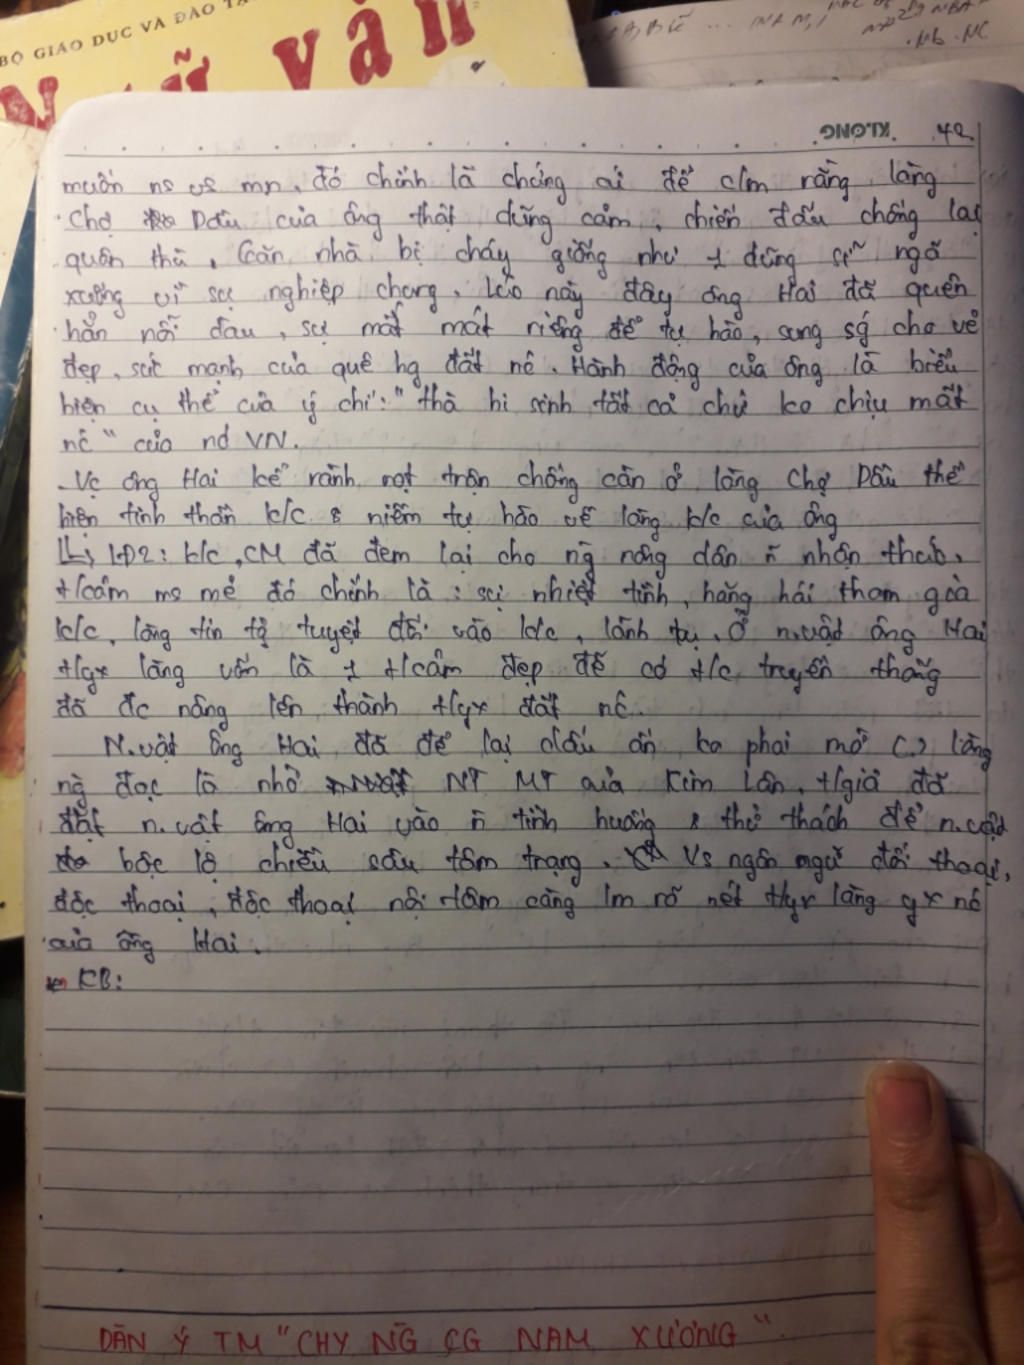 BỘ GIÁO DỤC VÀ ĐÀO TẠ
Ngữ văn
KLONG 42
muốn ns vs mn, đó chính là chứng cứ để c/m rằng làng
Chợ Dầu của ông thật dũng cảm, chiến đấu chống lại
quân thù, Căn nhà bị cháy giống như 1 dũng sĩ ngã
xuống vì sự nghiệp chung, lúc này đây ông Hai đã quên
hẳn nỗi đau, sự mất mát riêng để tự hào, sung sg cho vẻ
đẹp, sức mạnh của quê hg đất nc. Hành động của ông là biểu
hiện cụ thể của ý chí: "thà hi sinh tất cả chứ ko chịu mất
nc" của nd VN.
- Vc ông Hai kể rành rọt trận chống càn ở làng Chợ Dầu thể
hiện tinh thần k/c & niềm tự hào về làng k/c của ông
LĐ2: k/c, CM đã đem lại cho ng nông dân n nhận thức,
t/cảm ms mẻ đó chính là: sự nhiệt tình, hăng hái tham gia
k/c, lòng tin tg tuyệt đối vào k/c, lãnh tụ. Ở n.vật ông Hai
t/yx làng vốn là 1 t/cảm đẹp đẽ có t/c truyền thống
đã đc nâng lên thành t/yx đất nc.
N.vật ông Hai đã để lại dấu ấn ko phai mờ (.) lòng
ng đọc là nhờ NT MT của Kim Lân, t/giả đã
đặt n.vật ông Hai vào n tình huống & thử thách để n.vật
bộc lộ chiều sâu tâm trạng. Vs ngôn ngữ đối thoại,
độc thoại, độc thoại nội tâm càng lm rõ nét t/yx làng yx nc
của ông Hai.
- KB:
DÀN Ý TM "CHY NG CG NAM XƯƠNG"